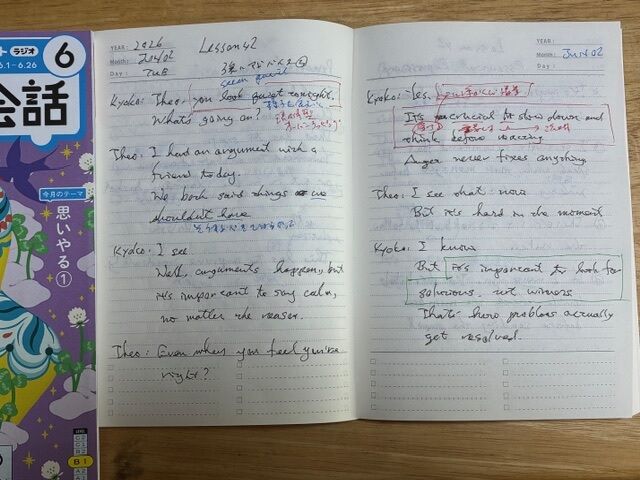 ト ラジオ 6
6.1-6.26
会話
今月のテーマ
思いやる①
LEVEL
C2
C1
B2
B1
A2
YEAR: 2026
Month: Jun/02
Day: Tue
Lesson 42
Kyoko: Theo, you look quiet tonight.
What's going on?
Theo: I had an argument with a
friend today.
We both said things we
shouldn't have
Kyoko: I see.
Well, arguments happen, but
it's important to stay calm,
no matter the reason.
Theo: Even when you feel you're
right?
YEAR:
Month: Jun/02
Day:
Kyoko: Yes.
It's crucial to slow down and
think before reacting.
Anger never fixes anything
Theo: I see that now
But it's hard in the moment
Kyoko: I know
But it's important to look for
solutions, not winners
That's how problems actually
get resolved.